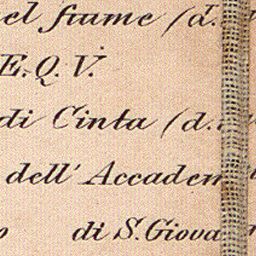 el fiume (d.
E.Q.V.
di Cinta (d.
dell' Accadem
o di S. Giova